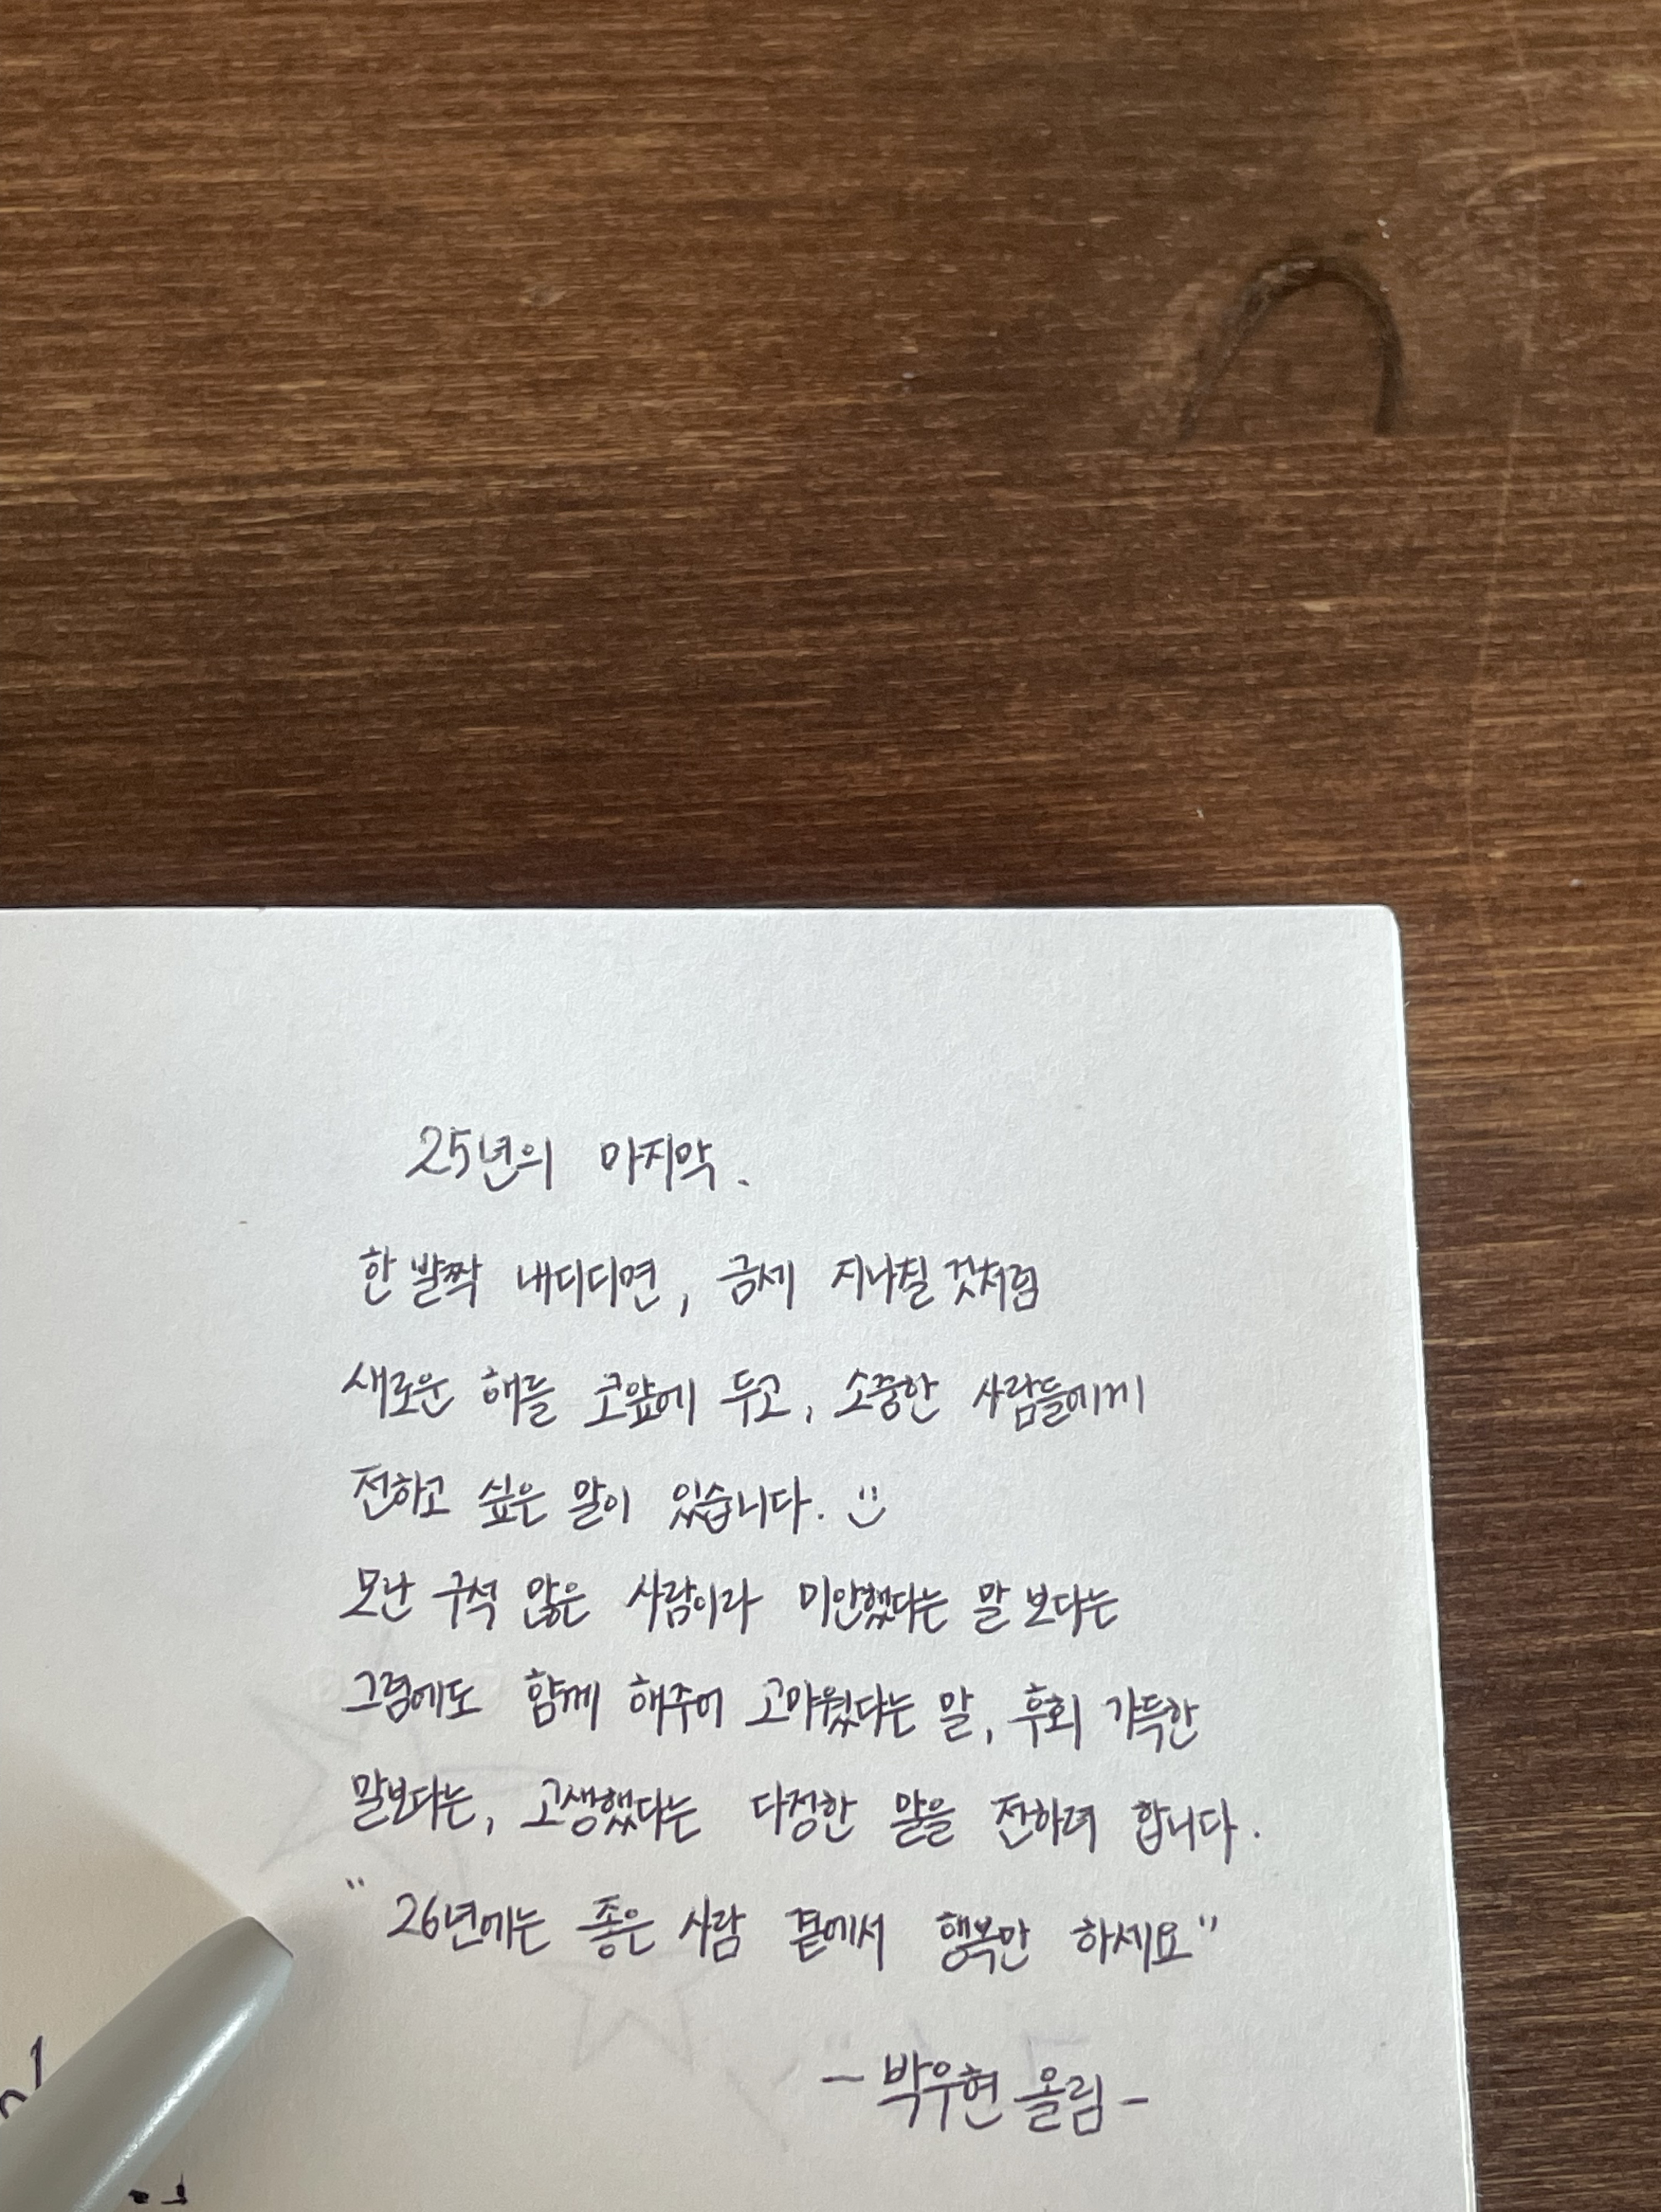 25년의 마지막.
한 발짝 내디디면, 금세 지나칠 것처럼
새로운 해를 코앞에 두고, 소중한 사람들에게
전하고 싶은 말이 있습니다. :)
모난 구석 많은 사람이라 미안했다는 말 보다는
그럼에도 함께 해주어 고마웠다는 말, 후회 가득한
말보다는, 고생했다는 다정한 말을 전하려 합니다.
"26년에는 좋은 사람 곁에서 행복만 하세요"
- 박우현 올림 -